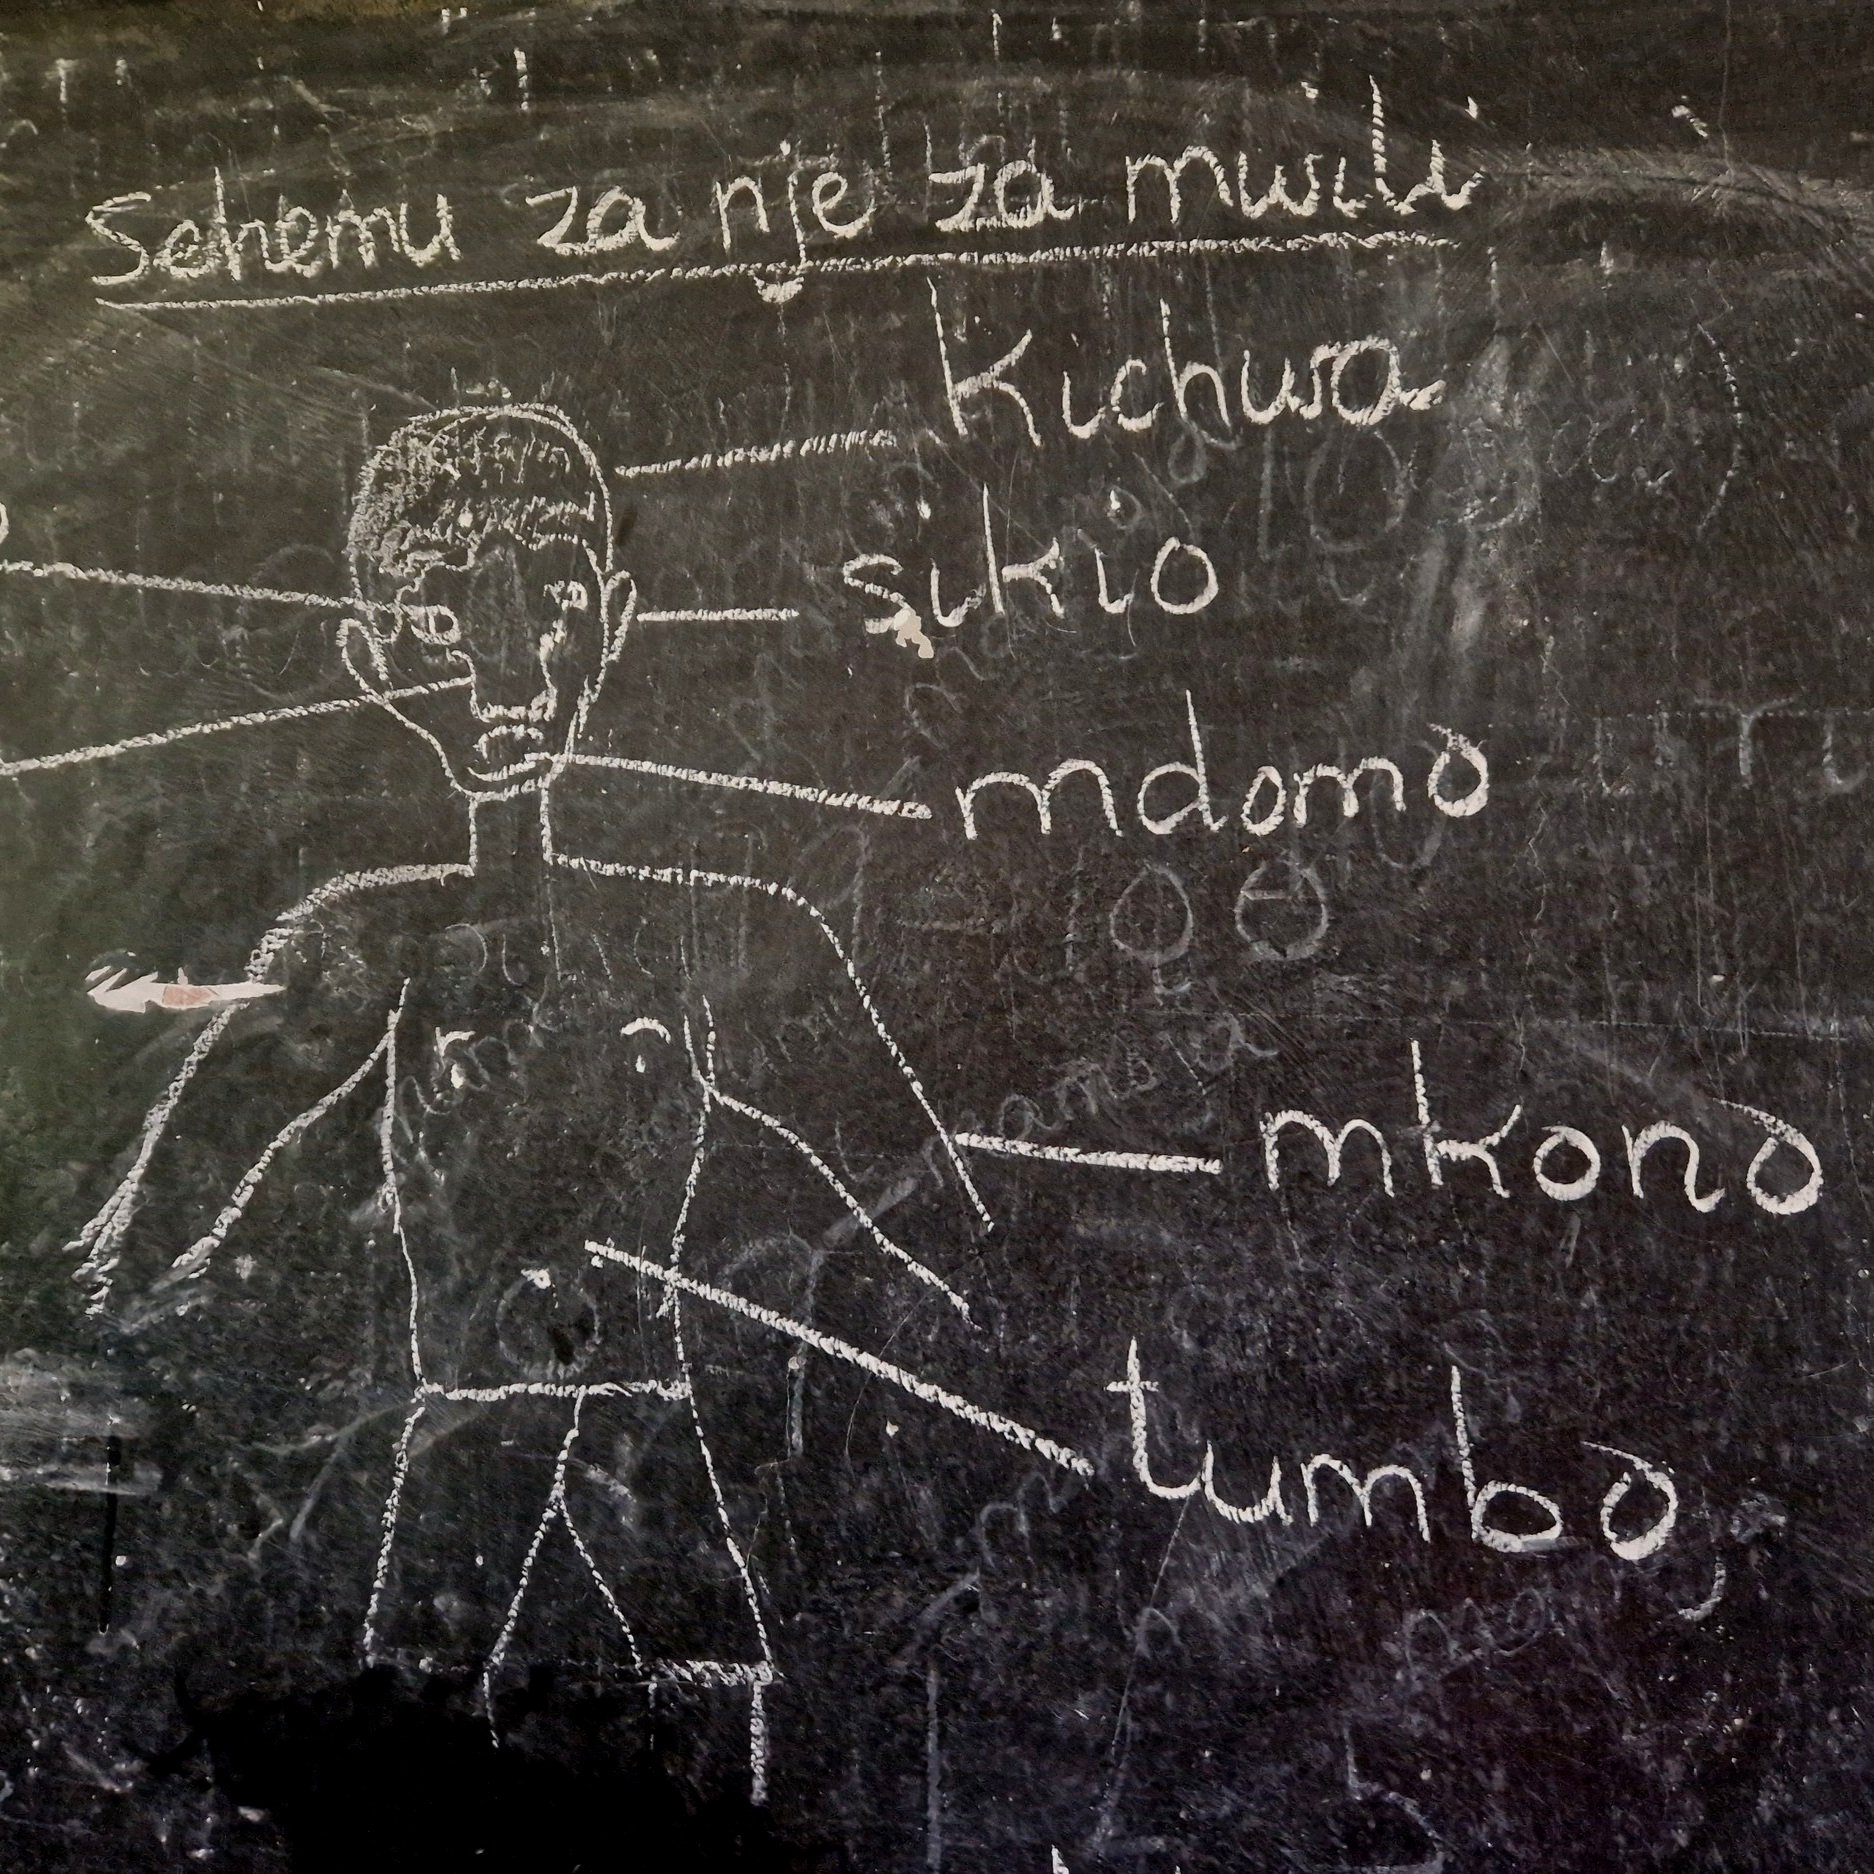 Sehemu za nje za mwili
Kichwa
sikio
mdomo
mkono
tumbo